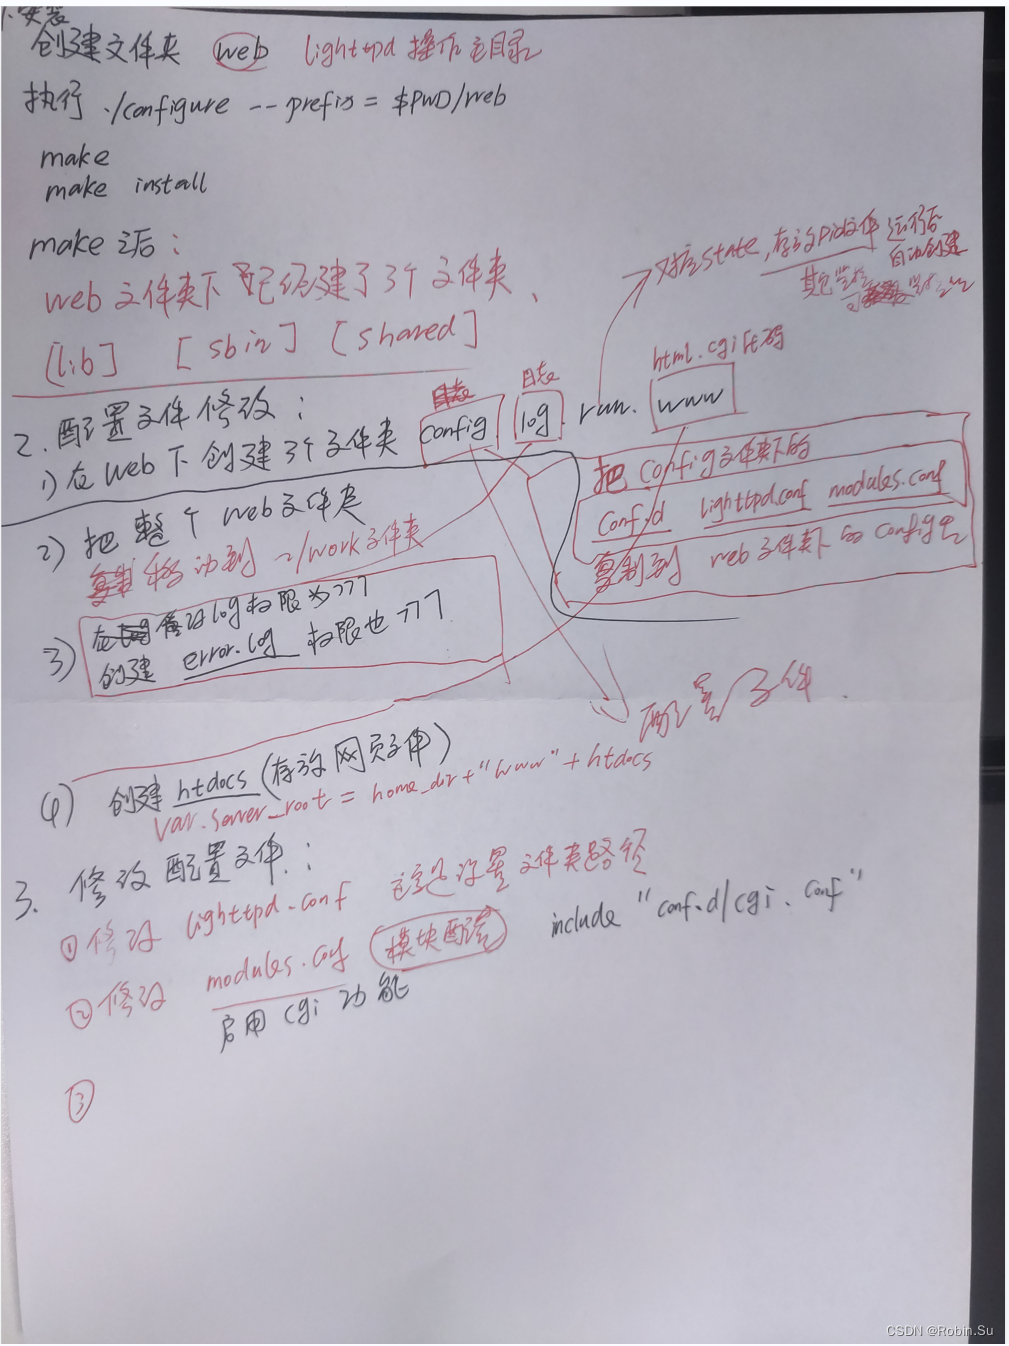 1.安装
创建文件夹 web lighttpd 操作主目录
执行 ./configure --prefix=$PWD/web
make
make install
make 之后：
web 文件夹下 已经建了3个文件夹、
[lib] [sbin] [shared]
对应state，存放pid文件 运行后
自动创建
其它
html.cgi代码
日志
2.配置文件修改：
1) 在web下创建3个文件夹 config log run. www
把config文件夹下的
conf.d lighttpd.conf modules.conf
复制到 web文件夹下的config里
2) 把整个web文件夹
移动到 ~/work文件夹
3) 修改log权限为777
创建 error.log 权限也777
配置文件
(4) 创建 htdocs (存放网页文件)
var.server_root = home_dir+"www"+htdocs
3. 修改配置文件：
①修改 lighttpd.conf 主要设置文件夹路径
②修改 modules.conf 模块配置 include "conf.d/cgi.conf"
启用cgi功能
③
CSDN @Robin.Su